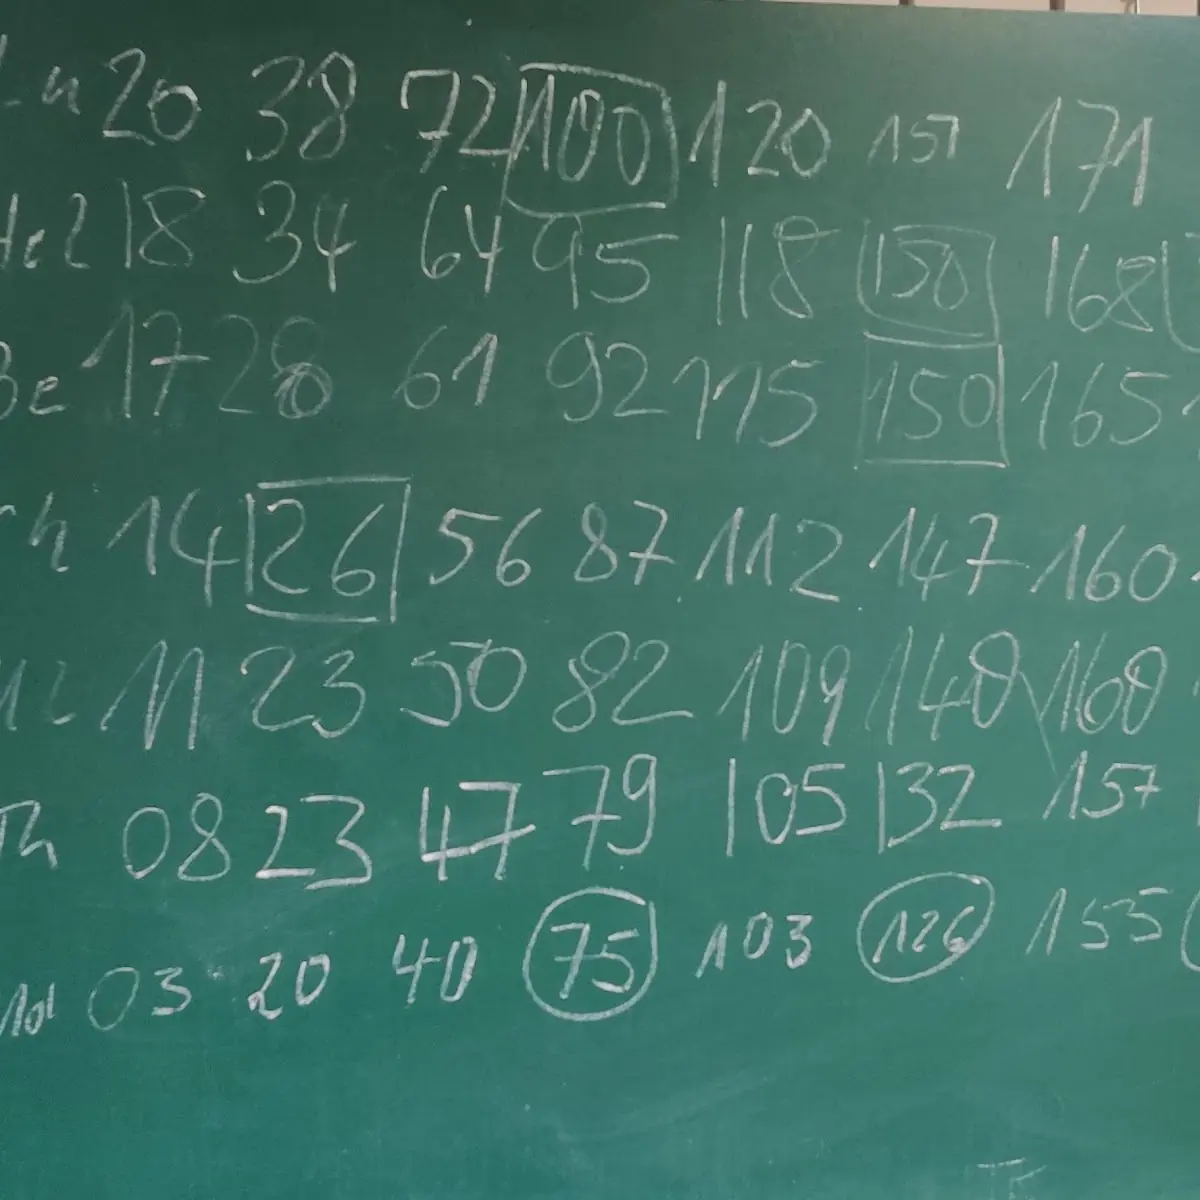 20 38 72 100 120 157 171
Hel 18 34 64 95 118 150 168
Be 17 28 61 92 115 150 165
h 14 26 56 87 112 147 160
11 23 50 82 109 140 160
Th 08 23 47 79 105 132 157
03 20 40 75 103 126 155